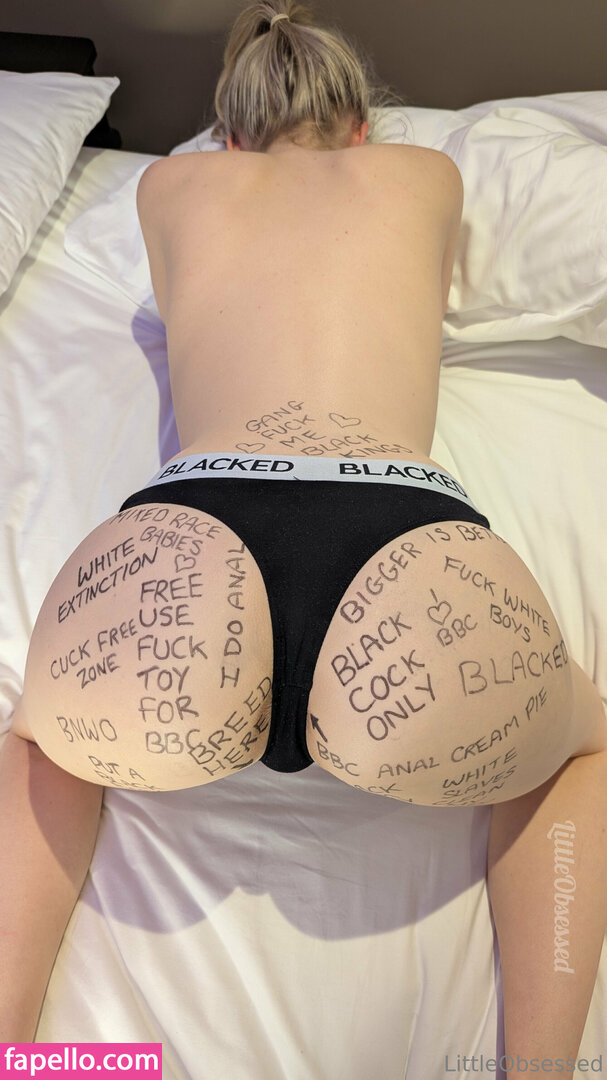 GANG
FUCK
ME
BLACK
KINGS
BLACKED BLACKED
MIXED RACE
BABIES
WHITE
EXTINCTION
CUCK FREE
ZONE
BNWO
PUT A
FREE
USE
FUCK
TOY
FOR
BBC
I DO ANAL
BREED
HERE
BIGGER IS
FUCK WHITE
BOYS
BLACK
COCK
ONLY
BBC
BLACKED
BBC ANAL CREAM PIE
WHITE
SLAVES
CLEAN
LittleObsessed
fapello.com
LittleObsessed